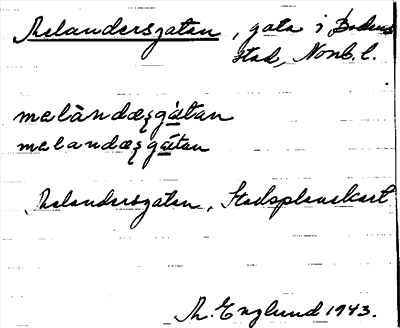 Melandersgatan, gata i Bodens
stad, Norrb. l.
melàndæʂgátan
melandæʂgátan
Melandersgatan, Stadsplanekart
M. Englund 1943.